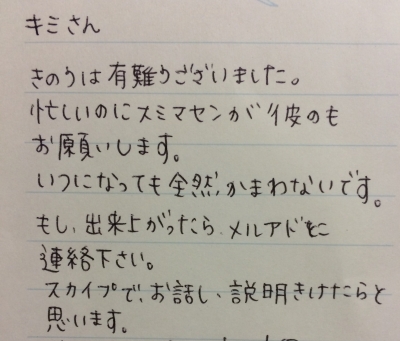 キミさん
きのうは有難うございました。
忙しいのにスミマセンが彼のも
お願いします。
いつになっても全然かまわないです。
もし、出来上がったら、メルアドに
連絡下さい。
スカイプで、お話し、説明きけたらと
思います。